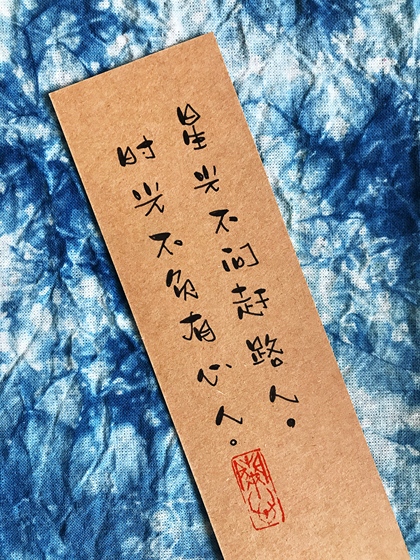 星光不问赶路人。
时光不负有心人。